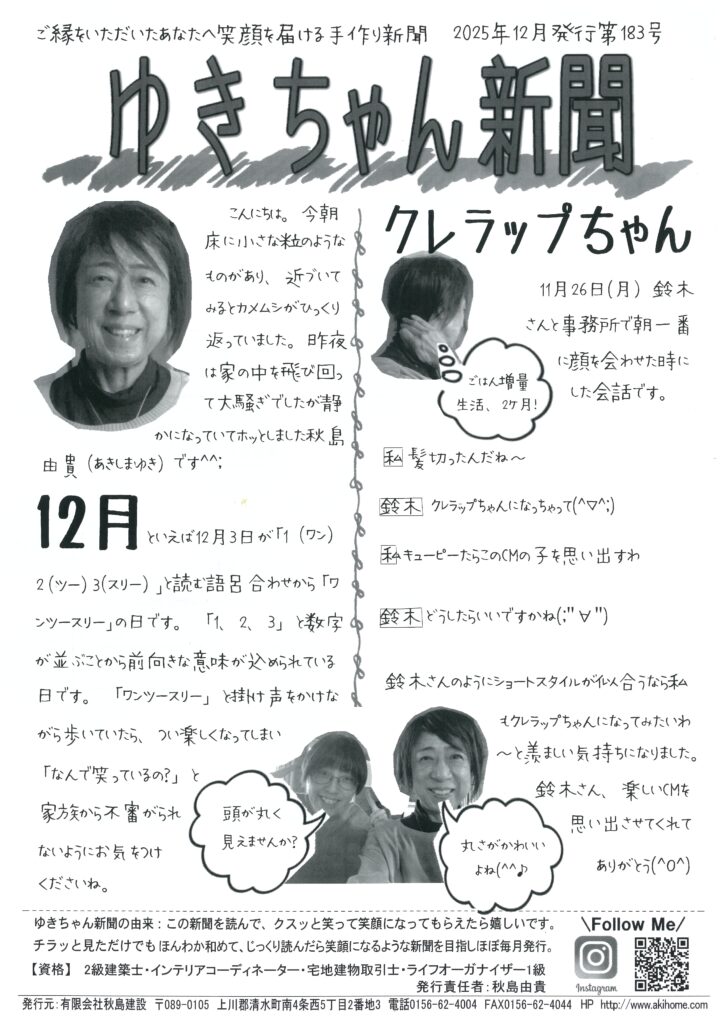 ご縁をいただいたあなたへ笑顔を届ける手作り新聞　2025年12月発行第183号
ゆきちゃん新聞
こんにちは。今朝
床に小さな粒のような
ものがあり、近づいて
みるとカメムシがひっくり
返っていました。昨夜
は家の中を飛び回っ
て大騒ぎでしたが静
かになっていてホッとしました秋島
由貴(あきしまゆき)です^^;
12月といえば12月3日が「1(ワン)
2(ツー)3(スリー)」と読む語呂合わせから「ワ
ンツースリー」の日です。「1、2、3」と数字
が並ぶことから前向きな意味が込められている
日です。「ワンツースリー」と掛け声をかけな
がら歩いていたら、つい楽しくなってしまい
「なんで笑っているの?」と
家族から不審がられ
ないようにお気をつけ
くださいね。
クレラップちゃん
11月26日(月)鈴木
さんと事務所で朝一番
に顔を会わせた時に
した会話です。
ごはん増量
生活、2ケ月!
私 髪切ったんだね〜
鈴木 クレラップちゃんになっちゃって(^▽^;)
私 キューピーたらこのCMの子を思い出すわ
鈴木 どうしたらいいですかね(;"∀")
鈴木さんのようにショートスタイルが似合うなら私
もクレラップちゃんになってみたいわ
〜と羨ましい気持ちになりました。
鈴木さん、楽しいCMを
思い出させてくれて
ありがとう(^O^)
頭が丸く
見えませんか?
丸さがかわいい
よね(^^♪
ゆきちゃん新聞の由来：この新聞を読んで、クスッと笑って笑顔になってもらえたら嬉しいです。
チラッと見ただけでもほんわか和めて、じっくり読んだら笑顔になるような新聞を目指しほぼ毎月発行。
【資格】 2級建築士・インテリアコーディネーター・宅地建物取引士・ライフオーガナイザー1級
発行責任者：秋島由貴
\Follow Me/
Instagram
発行元：有限会社秋島建設　〒089-0105　上川郡清水町南4条西5丁目2番地3　電話0156-62-4004　FAX0156-62-4044　HP http://www.akihome.com/